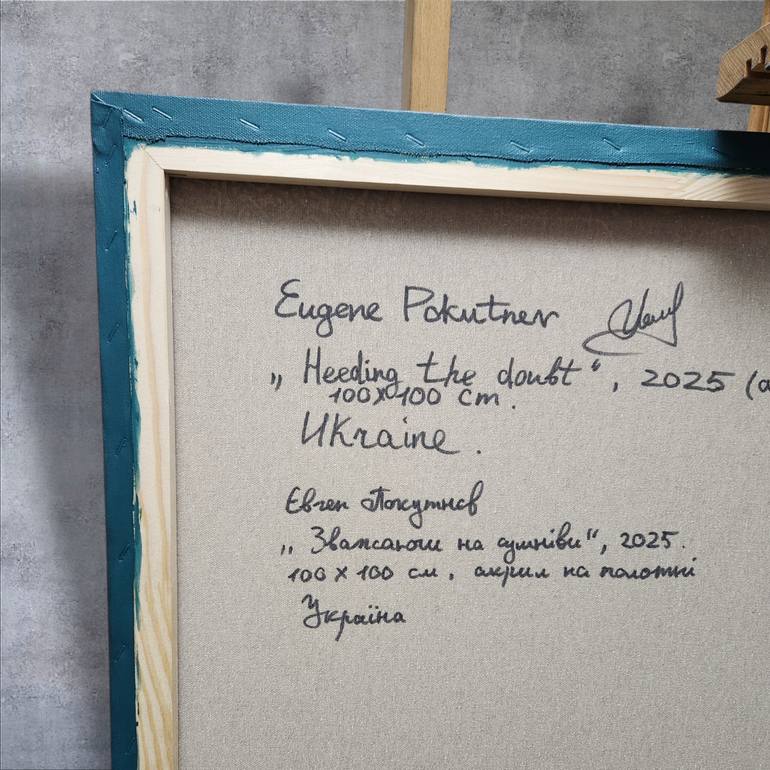 Eugene Pokutnev
„ Heeding the doubt“, 2025 (a
100x100 cm.
Ukraine.
Євген Покутнєв
„ Зважаючи на сумніви“, 2025.
100 x 100 см, акрил на полотні
Україна